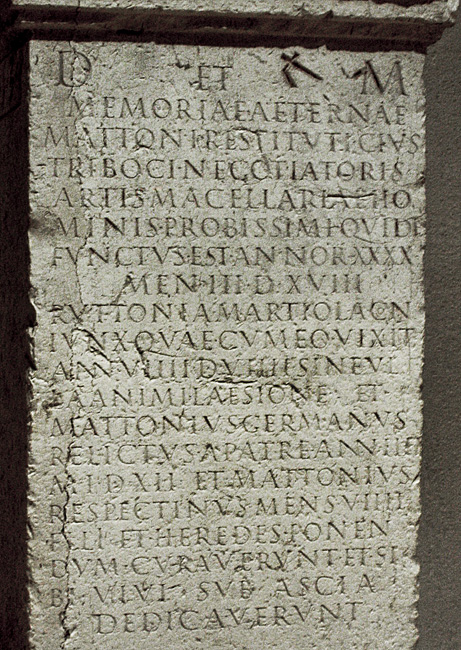 D ET M
MEMORIAE AETERNAE
MATTONI·RESTITVTI·CIVIS
TRIBOCI·NEGOTIATORIS
ARTIS MACELLARIAE·HO
MINIS·PROBISSIMI·QVI·DE
FVNCTVS·EST·ANNOR·XXXX
MEN·III·D·XVIII
RVTTONIA·MARTIOLA·CN
IVNX·QVAE·CVM·EO·VIXIT
ANN VIIII D VIIII SINE VL
LA ANIMI LAESIONE ET
MATTONIVS GERMANVS
RELICTVS A PATRE ANN III
M·I·D·XII ET MATTONIVS
RESPECTINVS MENS VIIII
FILI·ET·HEREDES·PONEN
DVM·CVRAVERVNT ET SI
BI·VIVI SVB ASCIA
DEDICAVERVNT